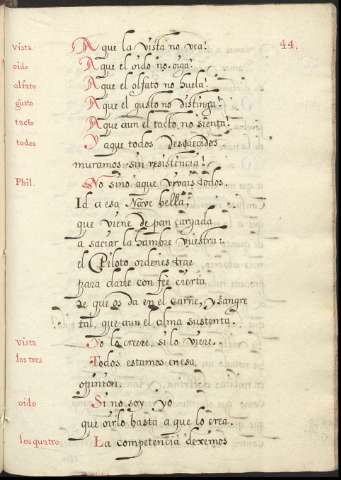 44.
vista A que la vista no vea!
oido A que el oido no oiga!
olfato A que el olfato no huela!
gusto A que el gusto no distinga!
tacto A que aun el tacto no sienta!
todos Y a que todos
muramos sin resistencia!
Phil. No sino a que vivais todos.
Id a esa Nave bella,
que viene de pan cargada
a saciar la hambre vuestra:
el Piloto ordenes trae
para darle con fee cierta
de que os da en el carne, y sangre
tal, que aun el alma sustenta.
vista No lo creere, si lo viere.
los tres Todos estamos en esa
opinion.
oido Si no soy yo
que oirlo basta a que lo crea.
los quatro. La competencia dexemos